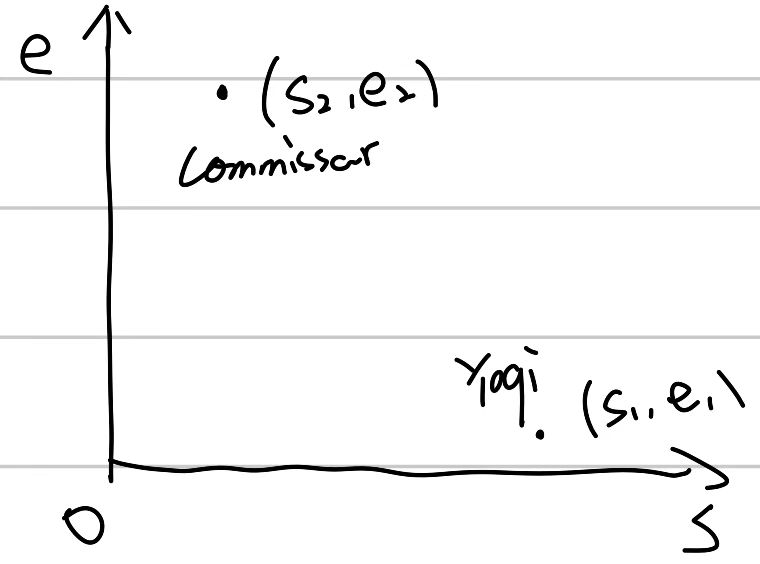 e
(s₂, e₂)
Commissar
Yogi
(s₁, e₁)
0
S